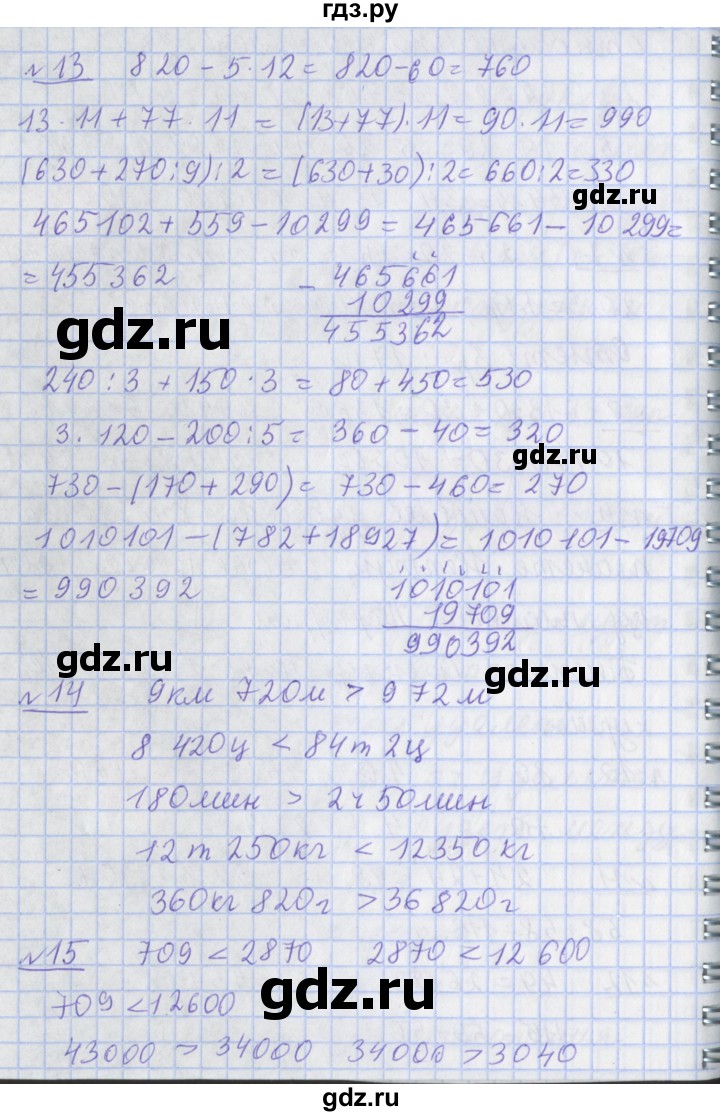 гдз.ру
№13 820 - 5·12 = 820 - 60 = 760
13·11 + 77·11 = (13+77)·11 = 90·11 = 990
(630+270:9):2 = (630+30):2 = 660:2 = 330
gdz.ru
465102 + 559 - 10299 = 465661 - 10299 =
= 455362
- 465661
10299
455362
gdz.ru
240:3 + 150·3 = 80 + 450 = 530
3·120 - 200:5 = 360 - 40 = 320
gdz.ru
730 - (170 + 290) = 730 - 460 = 270
1010101 - (782 + 18927) = 1010101 - 19709
= 990392
1010101
19709
990392
gdz.ru
gdz.ru
№14 9км 720м > 972м
8 420ц < 84т 2ц
180мин > 2ч 50мин
12т 250кг < 12350кг
360кг 820г > 36820г
№15 709 < 2870 2870 < 12 600
gdz.ru
709 < 12600
43000 > 34000 34000 > 3040
gdz.ru